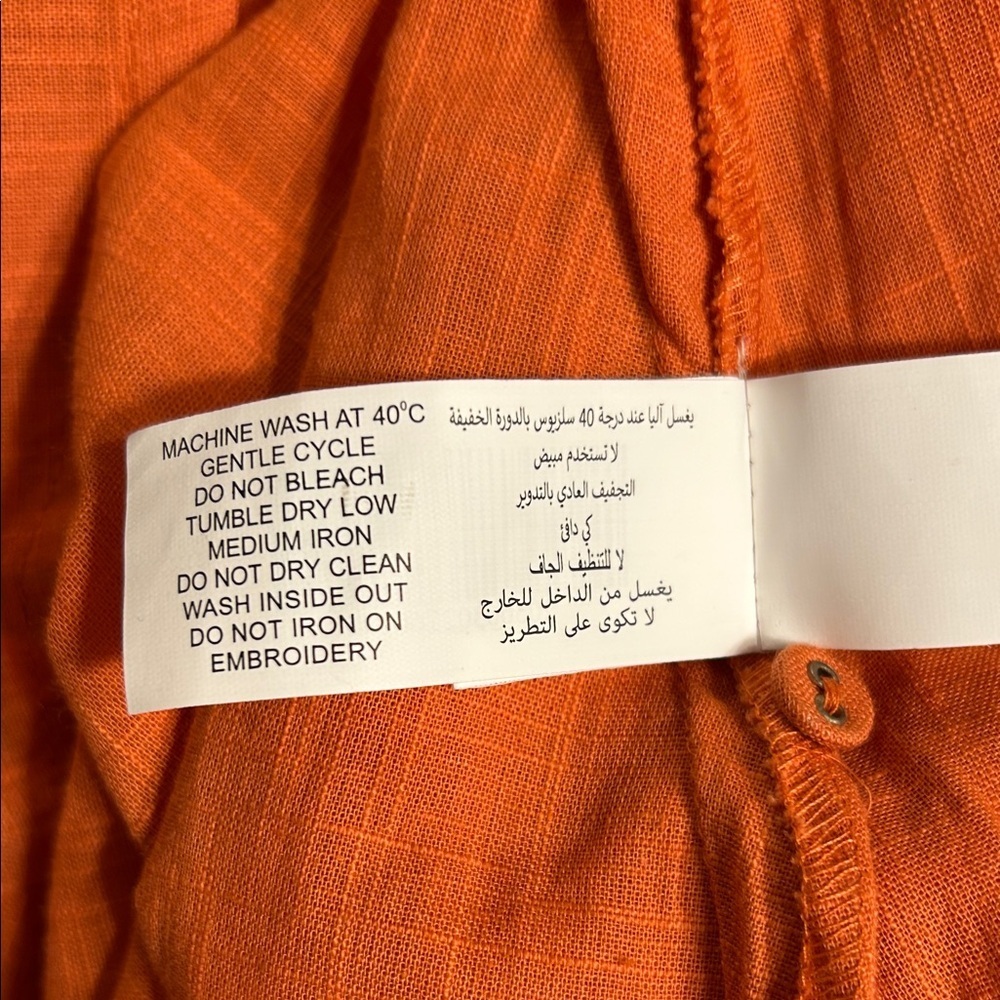 MACHINE WASH AT 40⁰C
GENTLE CYCLE
DO NOT BLEACH
TUMBLE DRY LOW
MEDIUM IRON
DO NOT DRY CLEAN
WASH INSIDE OUT
DO NOT IRON ON
EMBROIDERY
يغسل آليا عند درجة 40 سلزيوس بالدورة الخفيفة
لا تستخدم مبيض
التجفيف العادي بالتدوير
كي دافئ
لا للتنظيف الجاف
يغسل من الداخل للخارج
لا تكوى على التطريز